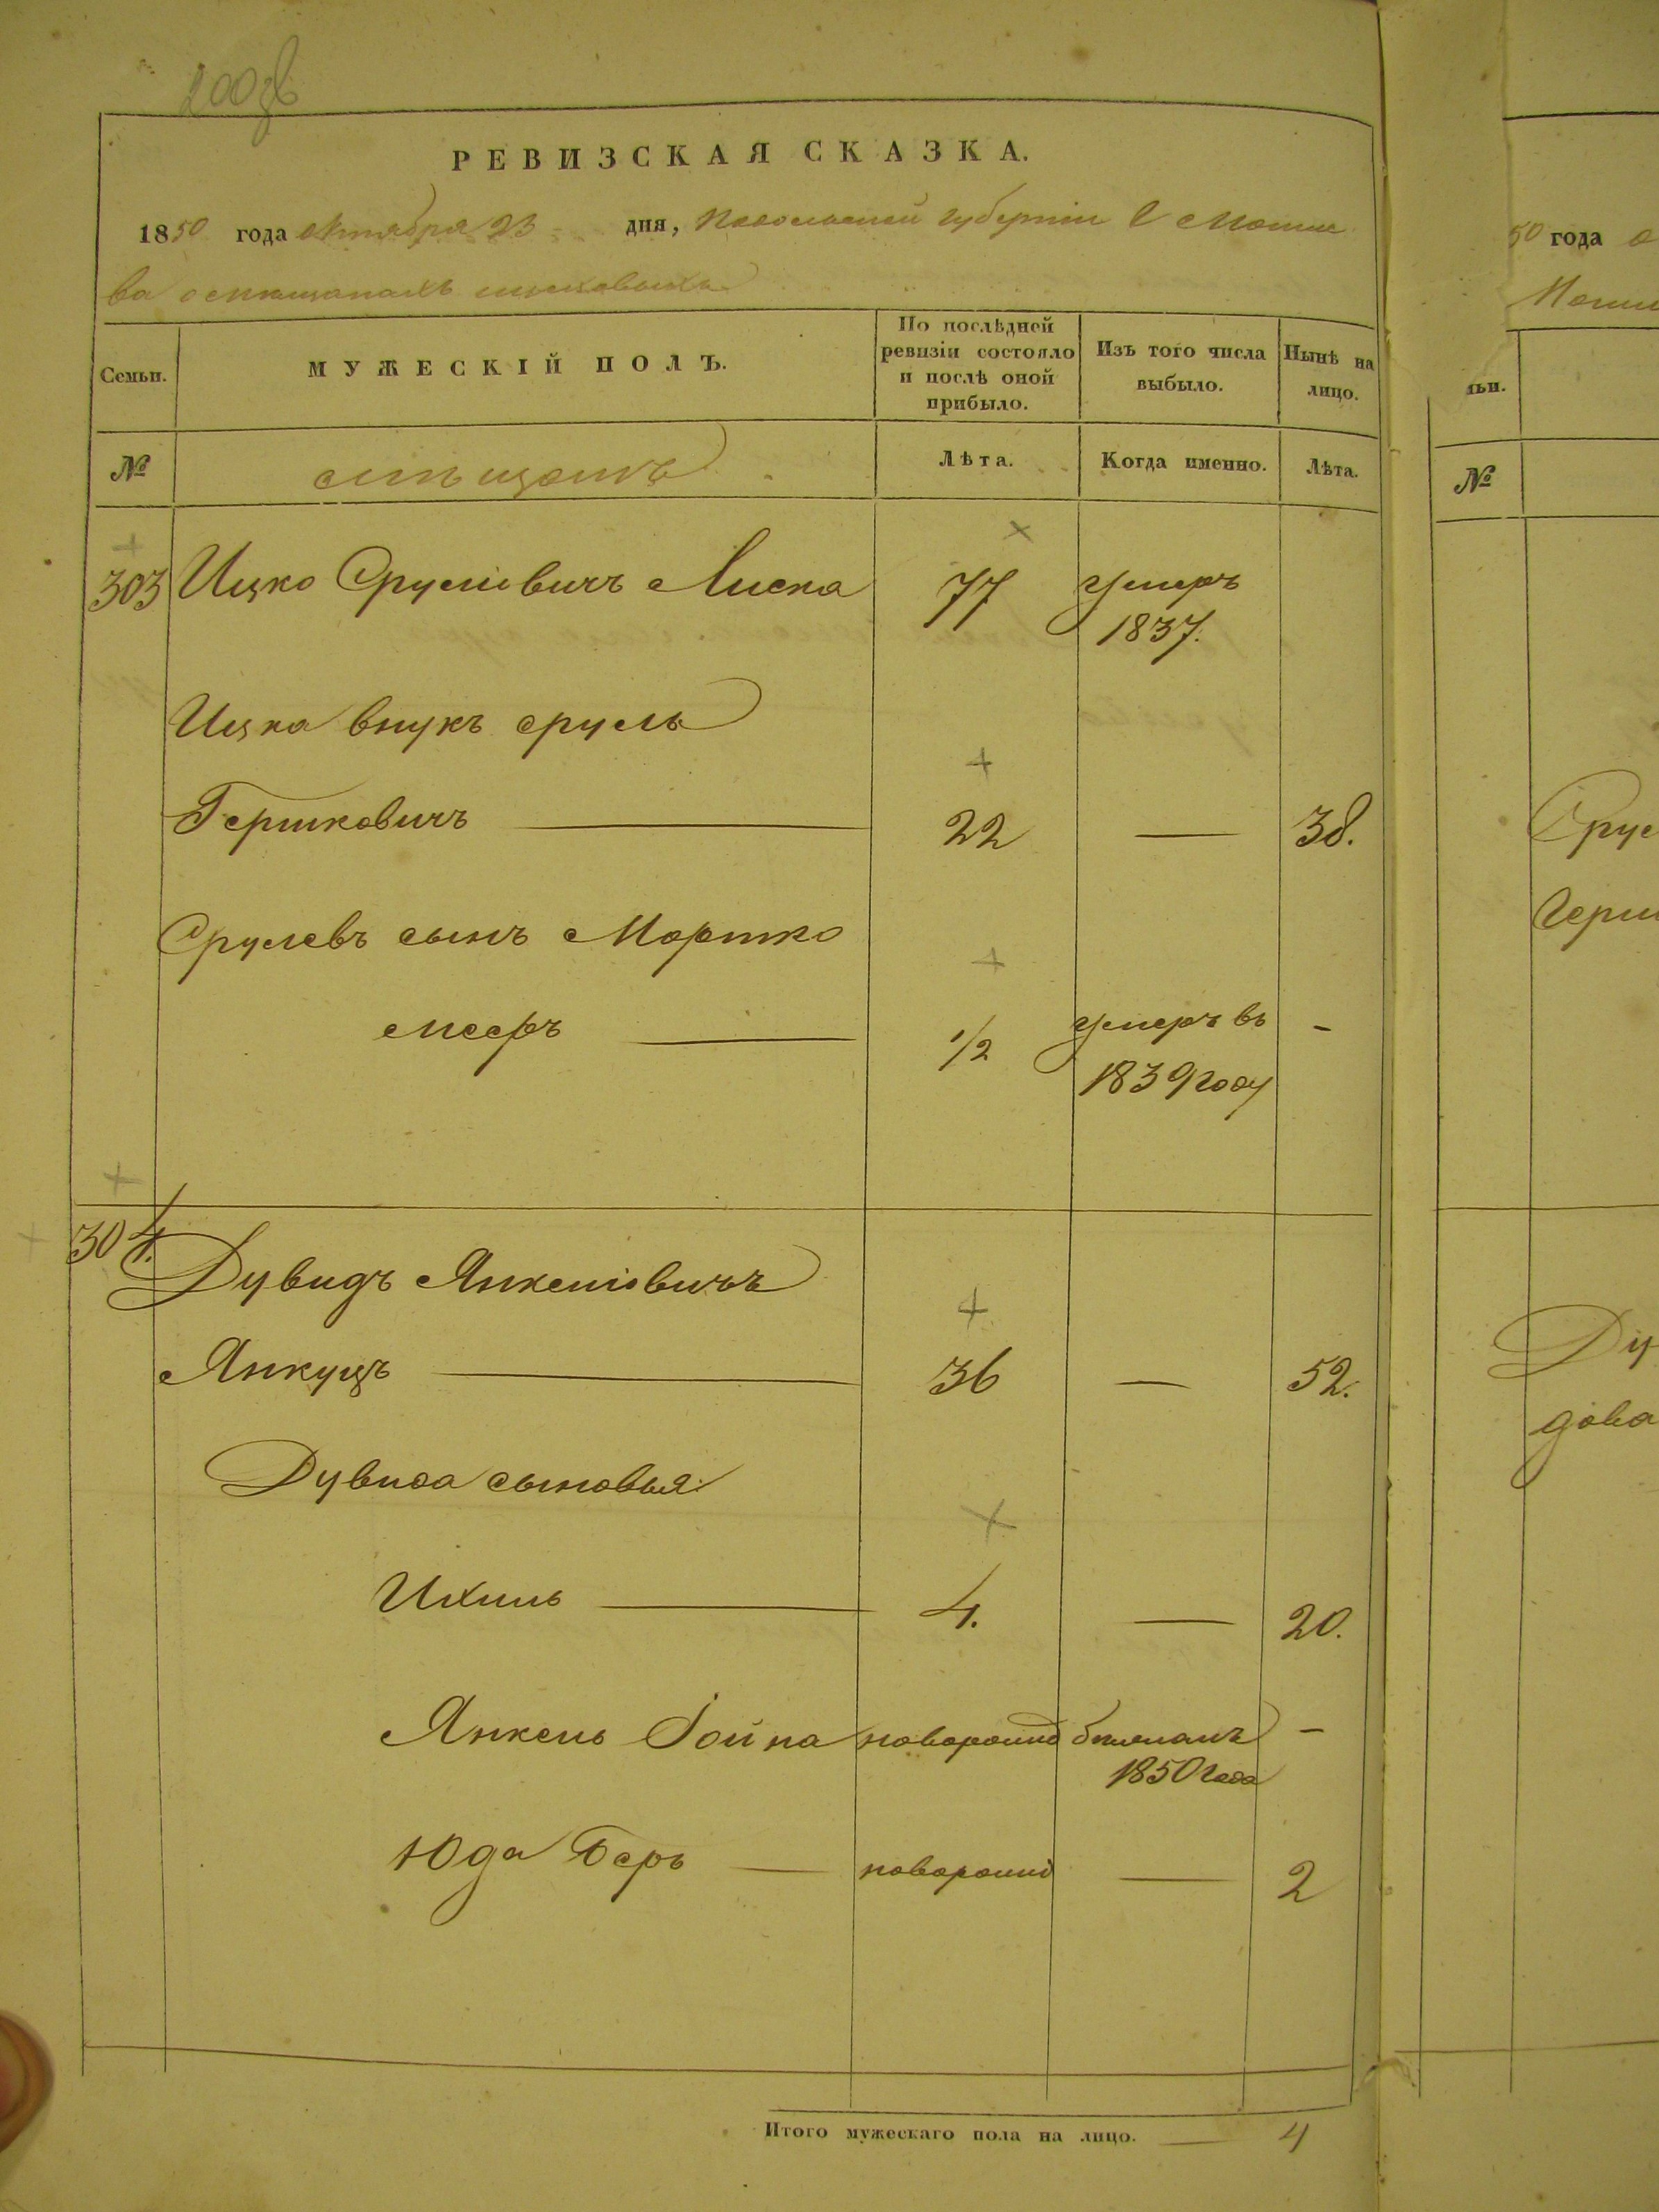 200об
РЕВИЗСКАЯ СКАЗКА.
1850 года октября 23 дня, Подольской губернии г Могиле
ва о мещанах
Семьи.
МУЖЕСКІЙ ПОЛЪ.
По послѣдней ревизіи состояло и послѣ оной прибыло.
Изъ того числа выбыло.
Нынѣ на лицо.
№
мѣщанъ
Лѣта.
Когда именно.
Лѣта.
303 Ицко Срулiовичъ Лиспа 77 умеръ
1837.
Ицка внукъ Сруль
Гершковичъ 22 — 38.
Срулевъ сынъ Мортко
Мееръ 1/2 умеръ въ -
1839 году
304. Дувидъ Янкелiовичъ
Янкуцъ 36 — 52.
Дувида сыновья:
Ихиль 4. — 20.
Янкель Іойна новорожд -
1850 года
Юда Беръ — новорожд — 2
Итого мужескаго пола на лицо. — 4
50 года о
Могил
ьи.
№
Срул
Герш
Ду
дова